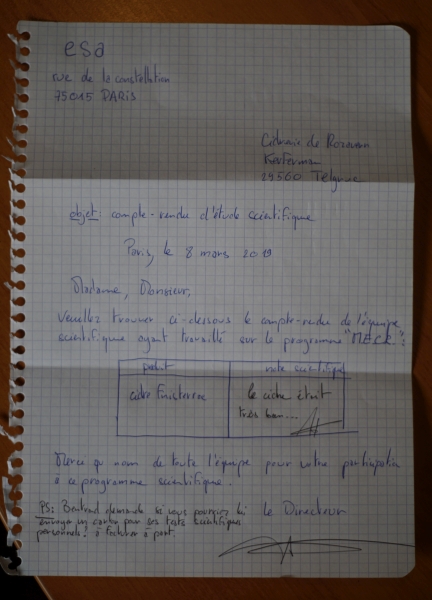 esa
rue de la constellation
75015 PARIS
Cidrerie de Rozavern
Kerferman
29560 Telgruc
objet: compte-rendu d'étude scientifique
Paris, le 8 mars 2019
Madame, Monsieur,
Veuillez trouver ci-dessous le compte-rendu de l'équipe
scientifique ayant travaillé sur le programme "MECR":
produit note scientifique
cidre Finisterrae le cidre était
très bon...
Merci au nom de toute l'équipe pour votre participation
à ce programme scientifique.
PS: Bertrand demande si vous pourriez lui
envoyer un carton pour ses tests scientifiques
personnels? à facturer à part.
le Directeur